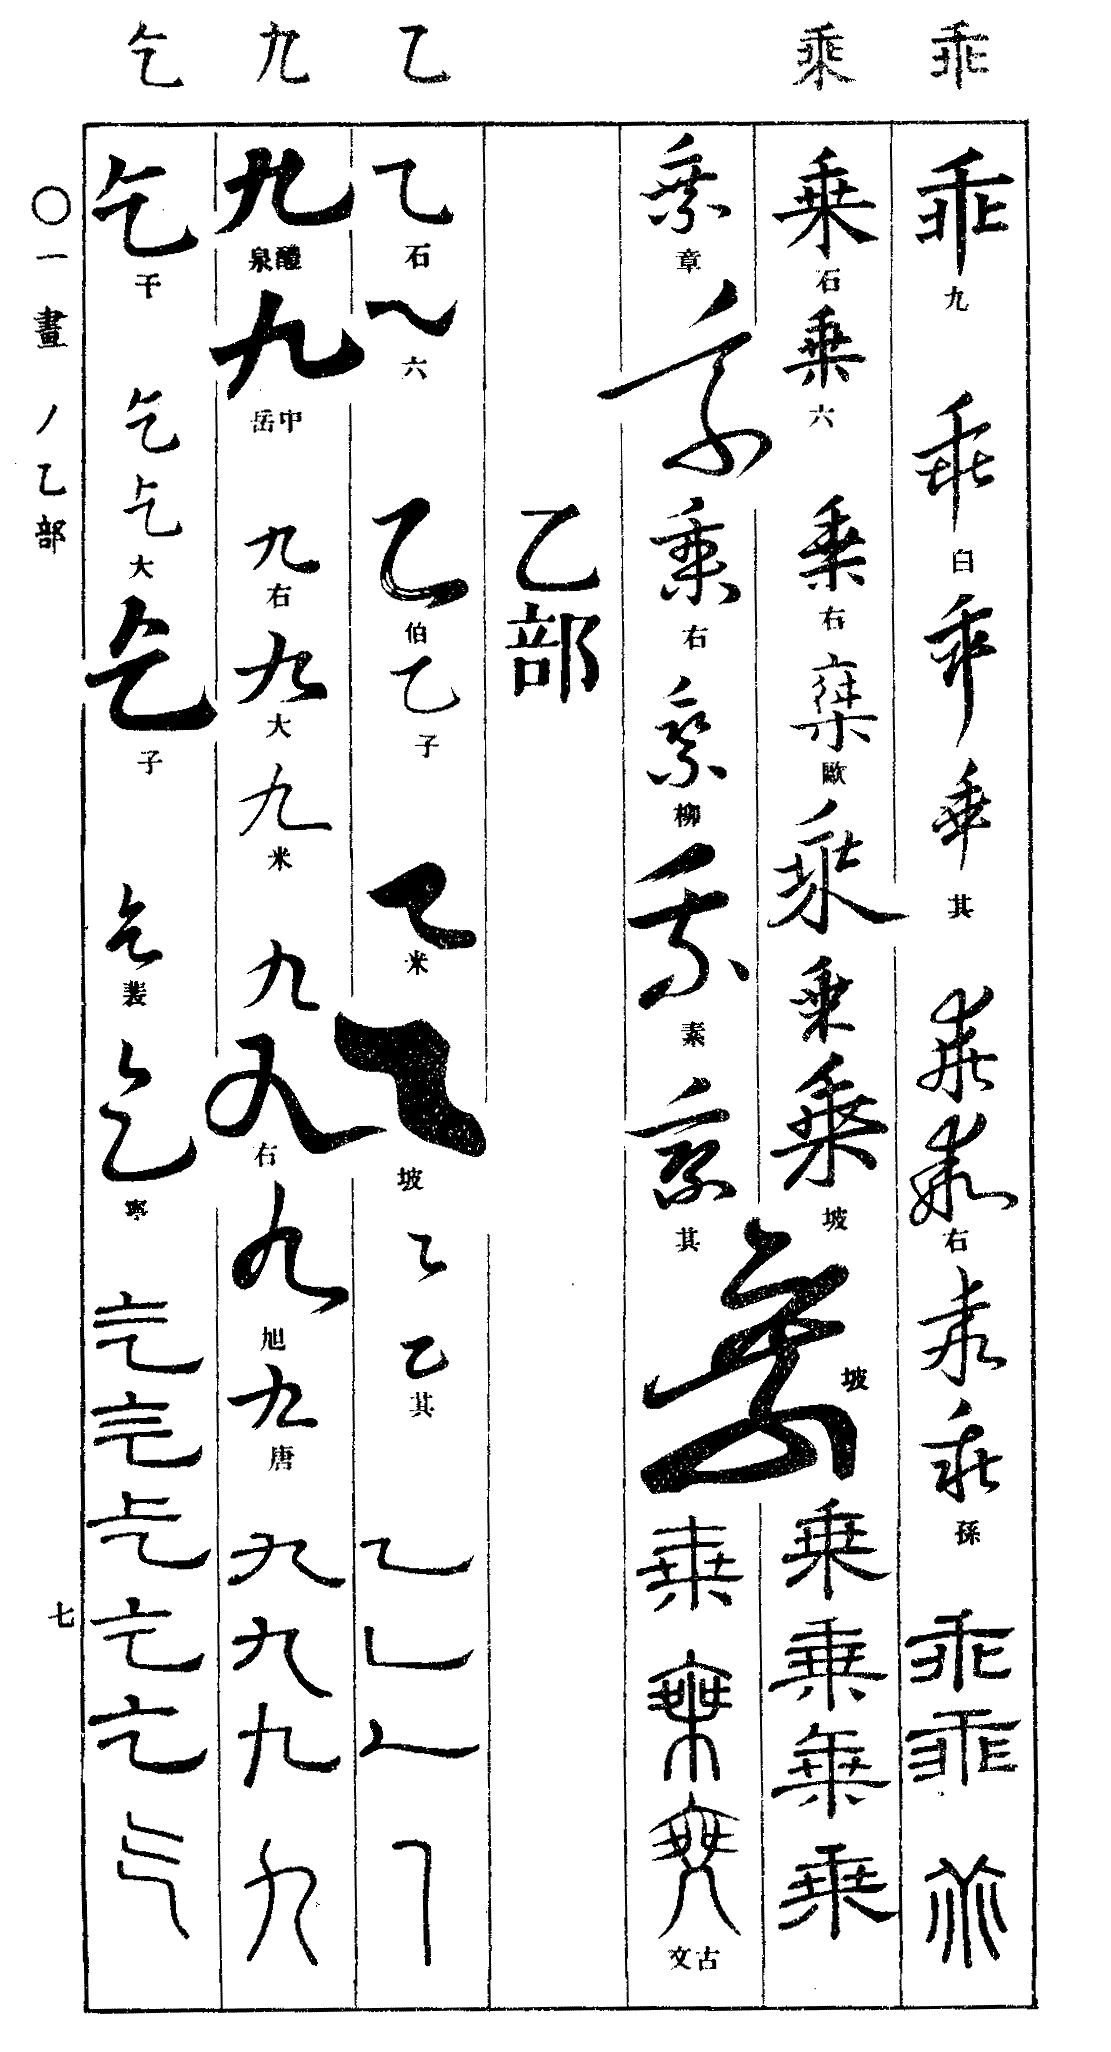 乖
乗
乙
九
乞
乖 九
乖 白
乖
乖 其
乖
乖 右
乖
乖 孫
乖
乖
乖
乗 石
乗 六
乗 右
乗 歐
乗
乗
乗 坡
乗
乗
乗
乗
乗 章
乗
乗 右
乗 柳
乗 素
乗 其
乗 坡
乗
乗
乗 古文
乙部
乙 石
乙 六
乙 伯
乙 子
乙 米
乙 坡
乙
乙 其
乙
乙
乙
乙
九 醴泉
九 中岳
九 右
九 大
九 米
九
九 右
九 旭
九 唐
九
九
九
九
乞 干
乞
乞 大
乞 子
乞 裴
乞 寧
乞
乞
乞
乞
乞
乞
〇一畫 丿乙部
七